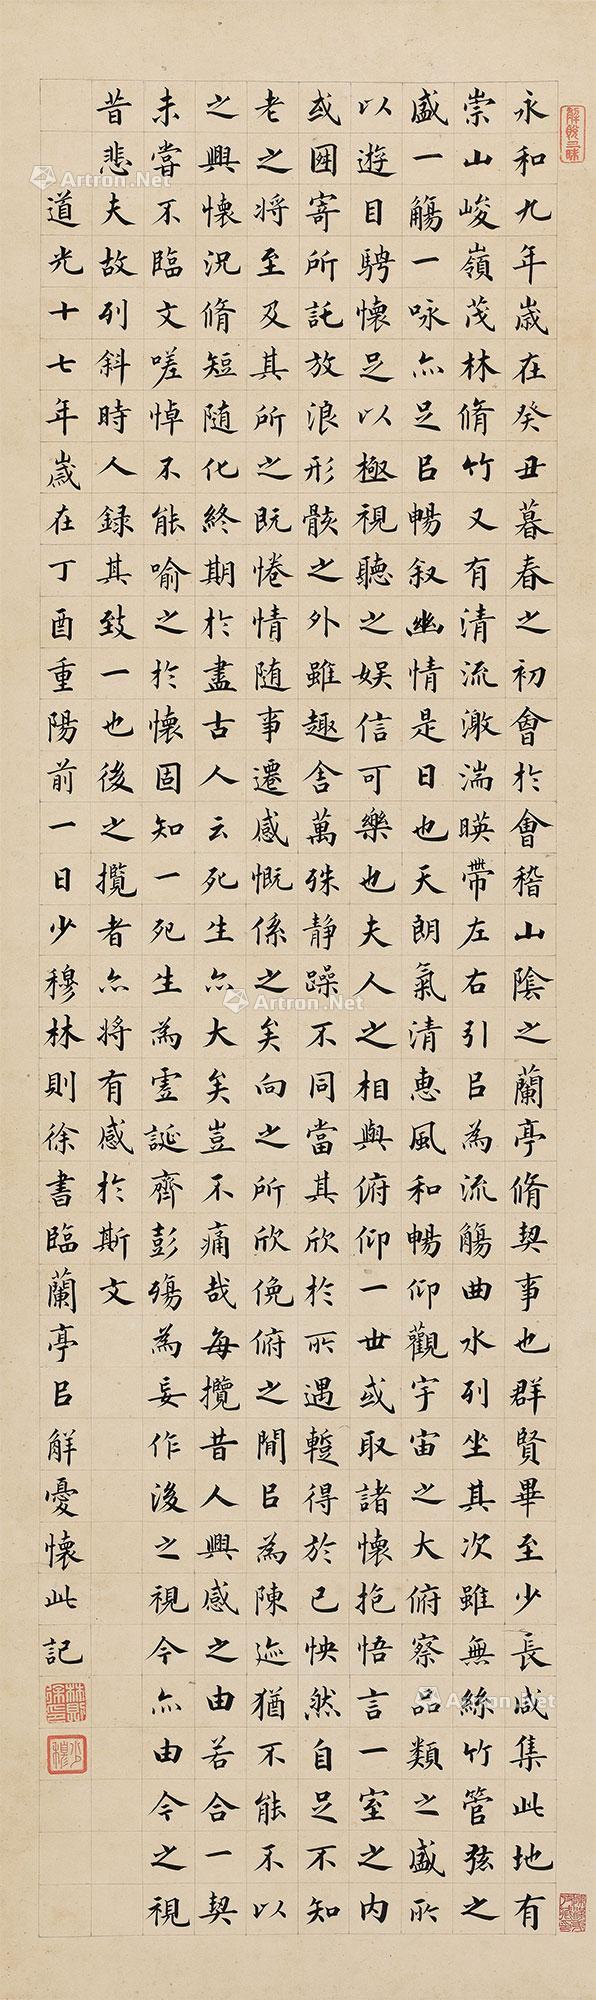 解脫三昧
永和九年歲在癸丑暮春之初會於會稽山陰之蘭亭脩契事也群賢畢至少長咸集此地有
崇山峻嶺茂林脩竹又有清流激湍暎帶左右引㠯為流觴曲水列坐其次雖無絲竹管弦之
盛一觴一咏亦足㠯暢叙幽情是日也天朗氣清惠風和暢仰觀宇宙之大俯察品類之盛所
以遊目騁懷足以極視聽之娱信可樂也夫人之相與俯仰一世或取諸懷抱悟言一室之内
或因寄所託放浪形骸之外雖趣舍萬殊静躁不同當其欣於所遇蹔得於己怏然自足不知
老之將至及其所之既惓情随事遷感慨係之矣向之所欣俛俯之間㠯為陳迹猶不能不以
之興懷況脩短随化終期於盡古人云死生亦大矣豈不痛哉每攬昔人興感之由若合一契
未嘗不臨文嗟悼不能喻之於懷固知一死生為虚誕齊彭殤為妄作後之視今亦由今之視
昔悲夫故列斜時人録其致一也後之攬者亦將有感於斯文
道光十七年歲在丁酉重陽前一日少穆林則徐書臨蘭亭㠯解憂懷此記
林則徐印
少穆
Artron.Net
Artron.Net
Artron.Net
Artron.Net
Artron.Net